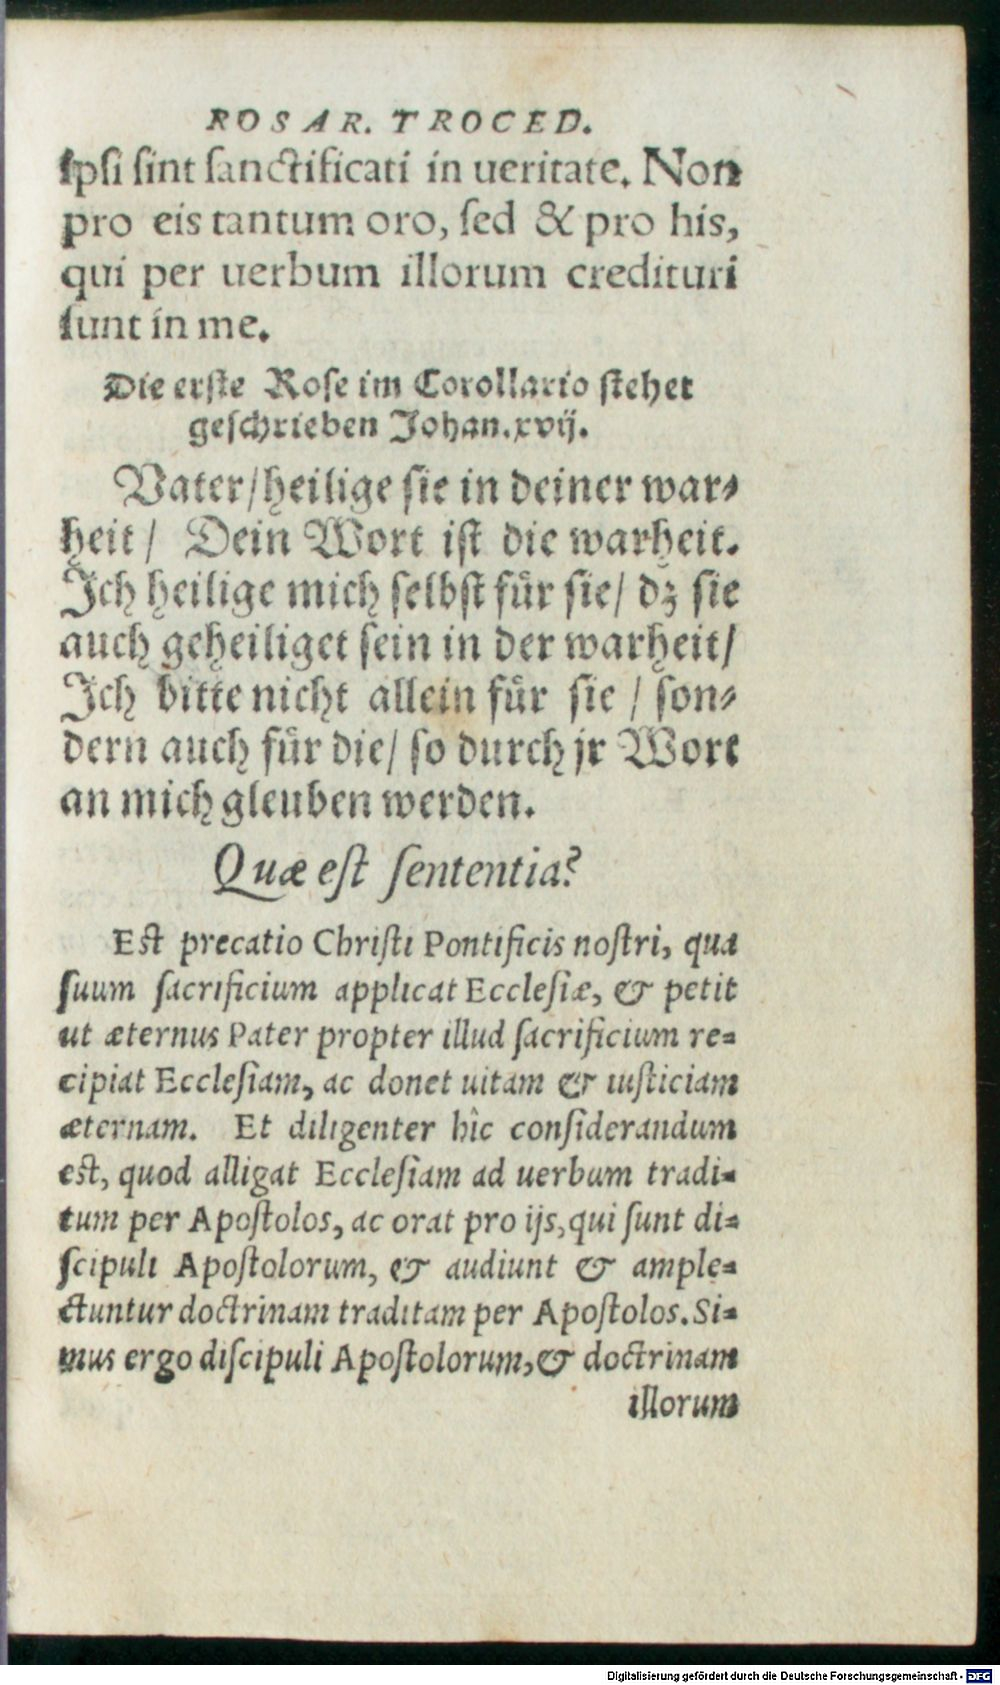 ROSAR. TROCED.
ipsi sint sanctificati in ueritate. Non
pro eis tantum oro, sed & pro his,
qui per uerbum illorum credituri
sunt in me.
Die erste Rose im Corollario stehet
geschrieben Johan.xvij.
Vater/heilige sie in deiner war⸗
heit/ Dein Wort ist die warheit.
Ich heilige mich selbst für sie/ dz sie
auch geheiliget sein in der warheit/
Ich bitte nicht allein für sie / son⸗
dern auch für die/ so durch jr Wort
an mich gleuben werden.
Quæ est sententia?
Est precatio Christi Pontificis nostri, qua
suum sacrificium applicat Ecclesiæ, & petit
ut æternus Pater propter illud sacrificium re=
cipiat Ecclesiam, ac donet uitam & iusticiam
æternam. Et diligenter hîc considerandum
est, quod alligat Ecclesiam ad uerbum tradi=
tum per Apostolos, ac orat pro ijs, qui sunt di=
scipuli Apostolorum, & audiunt & ample=
ctuntur doctrinam traditam per Apostolos. Si=
mus ergo discipuli Apostolorum, & doctrinam
illorum
Digitalisierung gefördert durch die Deutsche Forschungsgemeinschaft - DFG